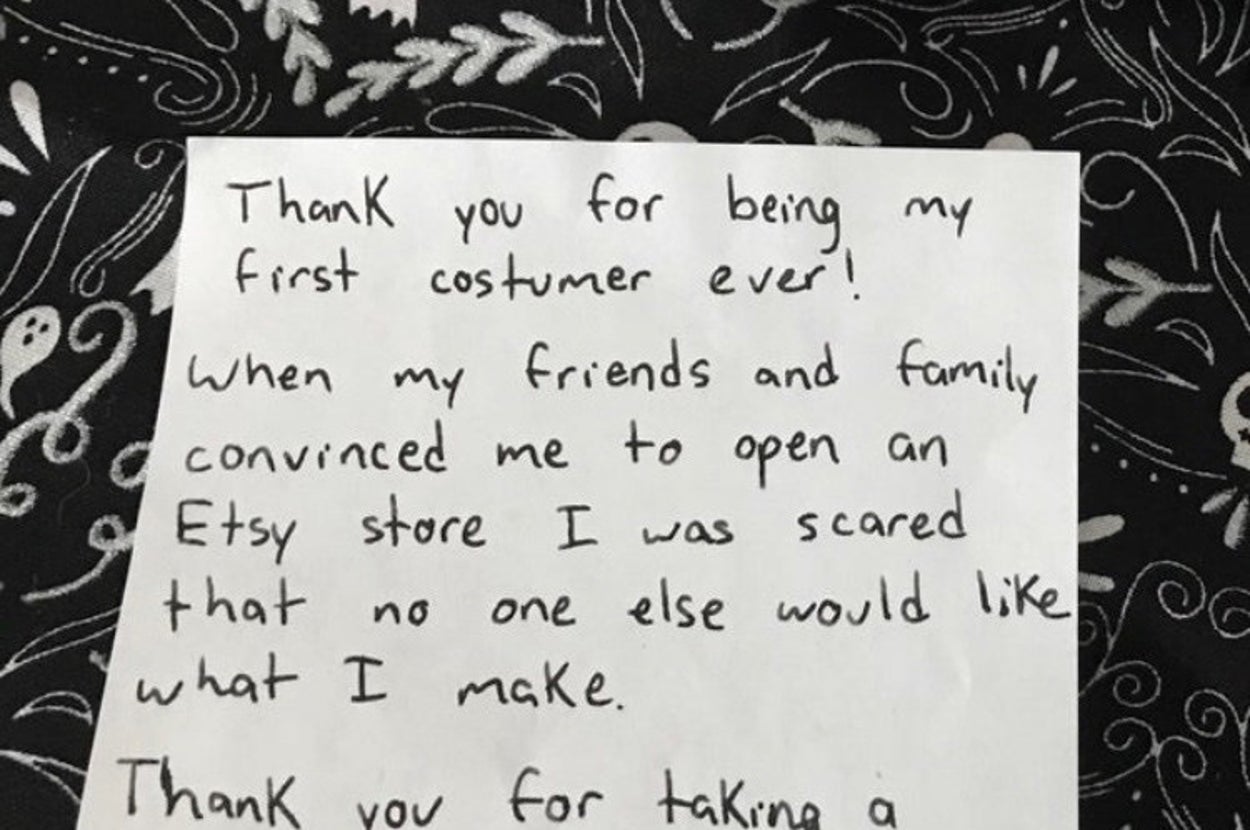 Thank you for being my
first costumer ever!
When my friends and family
convinced me to open an
Etsy store I was scared
that no one else would like
what I make.
Thank you for taking a